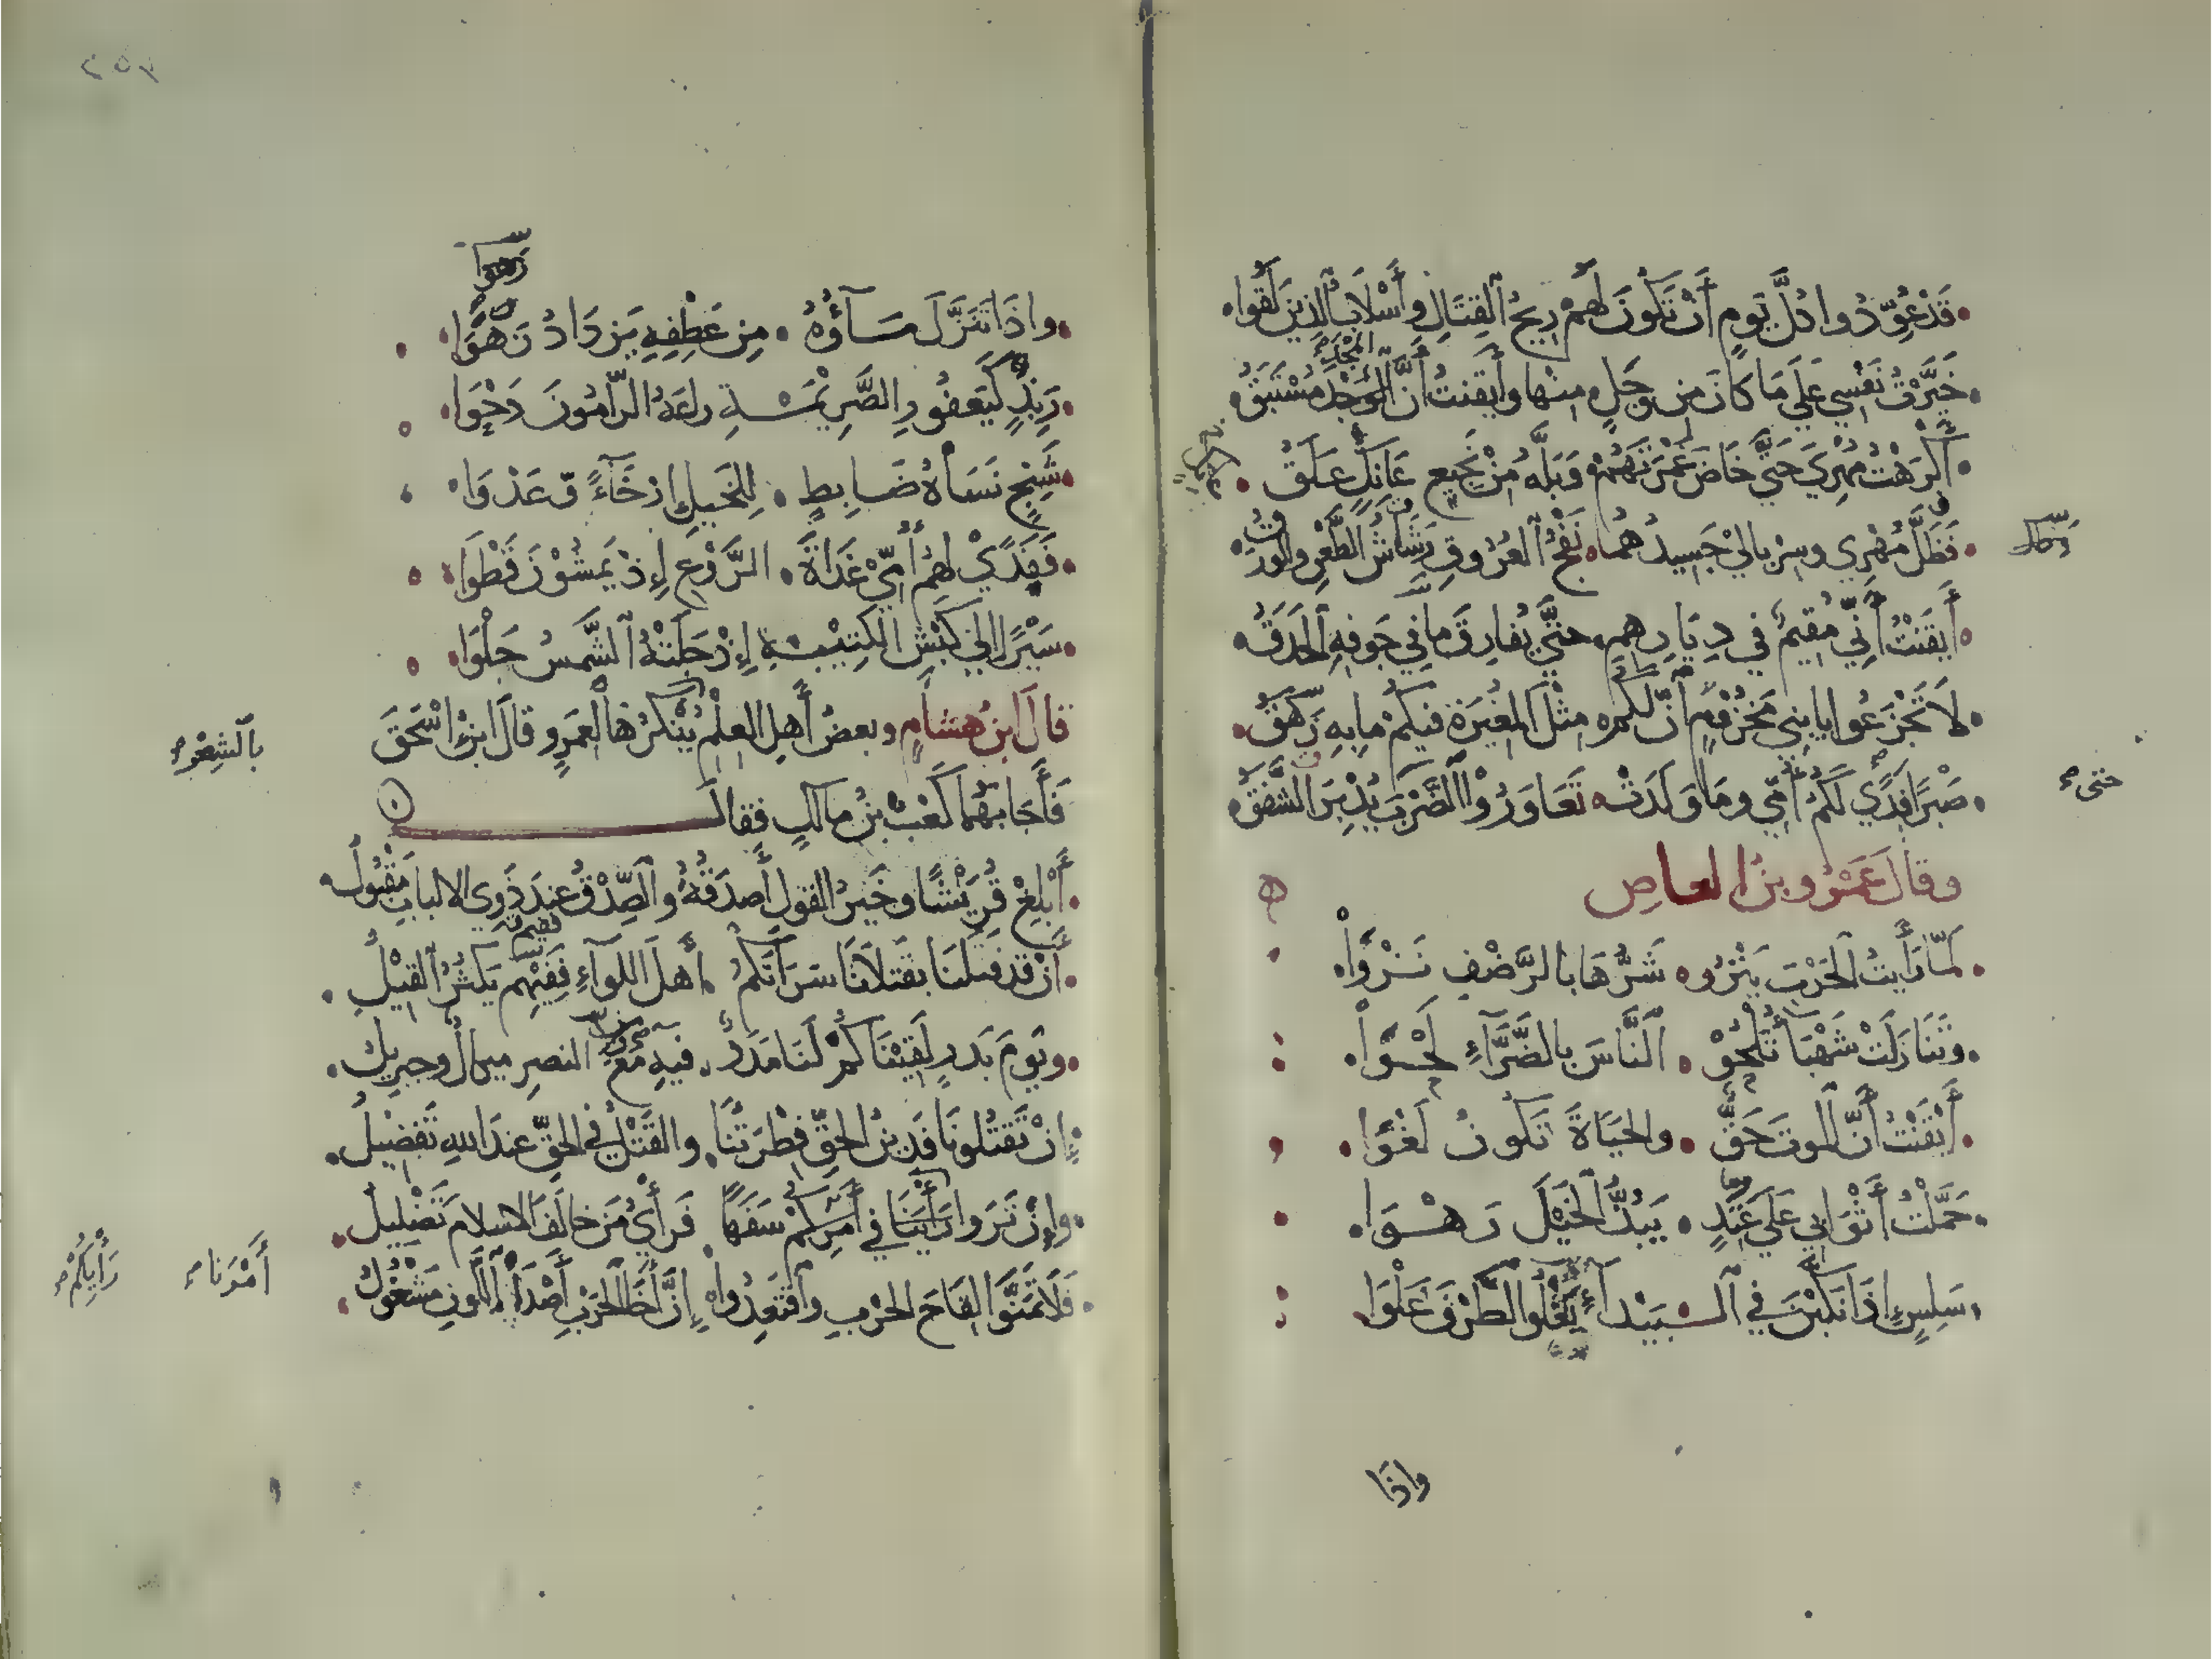 قَدْ عُوِّدُوا كُلَّ يَومٍ أَنْ تَكُونَ لَهُمْ رِيحُ القِتَالِ وَأَسْلَابُ الَّذِينَ لَقُوا
خَيَّرْتُ نَفْسِي عَلَى مَا كَانَ مِن وَجَلٍ مِنْهَا وَأَيقَنتُ أَنَّ المَجْدَ مُسْتَبَقُ
أَكْرَهْتُ مُهْرِي حَتَّى خَاضَ غَمْرَتَهُمْ وَبَلَّهُ مِنْ نَجِيعٍ عَانِكٍ عَلَقُ
فَظَلَّ مُهْرِي وسِرْبَالِي جَسِيدُهُمَا نَفْخُ العُرُوقِ رَشَاشُ الطَّعْنِ والوَرَقُ
وَكَان
أَيقَنتُ أَنِّي مُقِيمٌ في دِيَارِهِم حَتَّى يُفَارِقَ مَا فِي جَوفِهِ الحَدَقُ
لَا تَجْزَعُوا يا بَنِي مَخْزُومٍ أَنَّ لَكُم مِثْلَ المُغِيرَةِ فِيكُمْ مَا بِهِ زَهَقُ
صَبْرًا فِدًى لَكُمْ أُمِّي وَمَا وَلَدَتْ تَعَاوَرُوا الضَّرْبَ حتى يُدْبِرَ الشَّفَقُ
وقالَ عَمْرُو بنُ العاصِ
لَمَّا رَأَيتُ الحَرْبَ يَنْزُو شَرُّهَا بالرَّضْفِ نَزْوَا
وتَنَازَلَتْ شَهْبَاءُ تَلْحُو النَّاسَ بالضَّرَّاءِ لَحْوَا
أَيْقَنْتُ أَنَّ المَوتَ حَقٌّ والحَيَاةَ تَكُونُ لَغْوَا
حَمَّلْتُ أَثْوَابِي عَلَى عَتِدٍ يَبُذُّ الخَيْلَ رَهْوَا
سَلِسٍ إِذَا نُكِبْنَ في البَيْدَاءِ يَعْلُو الطَّرْفَ عَلْوَا
واذا
واذَا تَنَزَّلَ مَاؤُهُ مِن عَطْفِهِ يَزدَادُ زَهْوَا
رَبِذٍ كَيَعفُورِ الصَّرِيْمَةِ رَاعَهُ الرَّامُونَ دَحْوَا
شَنِجٍ نَسَاهُ ضَابِطٍ لِلخَيلِ إِرْخَاءً وَّعَدْوَا
فَفِدًى لَهُمْ أُمِّي غَدَاةَ الرَّوْعِ إِذْ يَمشُوْنَ قَطْوَا
سَيْرًا إِلَى كَبْشِ الكَتِيْبَةِ إِذْ جَلَتْهُ الشَّمسُ جَلْوَا
قالَ ابنُ هِشَامٍ وبعضُ أَهلِ العِلْمِ بالشِعْرِ يُنْكِرُهَا لِعَمرٍو قالَ ابنُ اسْحَقَ
فَأَجَابَهُمَا كَعْبُ بنُ مالكٍ فقالَ
أَبْلِغْ قُرَيْشًا وخَيرُ القولِ أَصدَقُهُ والصِّدْقُ عِندَ ذَوِي الالبابِ مَقْبُولُ
أَنْ قَد قتلنَا بقَتلَانَا سَرَاتَكُمُ أَهلَ اللِّوَاءِ فَفِيْمَ يَكثُرُ القِيْلُ
ويَومَ بَدرٍ لَقِيْنَاكُمْ لَنَا مَدَدٌ فِيهِ مَعَ النصرِ ميكالٌ وجبريلُ
إِنْ تَقتُلُونَا فَدِينُ الحَقِّ فِطْرَتُنَا والقَتْلُ في الحَقِّ عندَ اللهِ تَفضِيلُ
وإِنْ تَرَوا أَمْرَنا في رَأْيِكُمْ سَفَهًا فَرَأْيُ مَن خَالَفَ الاسلامَ تَضْلِيلُ
فَلَا تَمَنَّوْا لِقَاحَ الحَرْبِ وَاقْتَعِدُوا إِنَّ أَخَا الحَرْبِ أَصْدَأُ اللَّونِ مَشْغُولُ